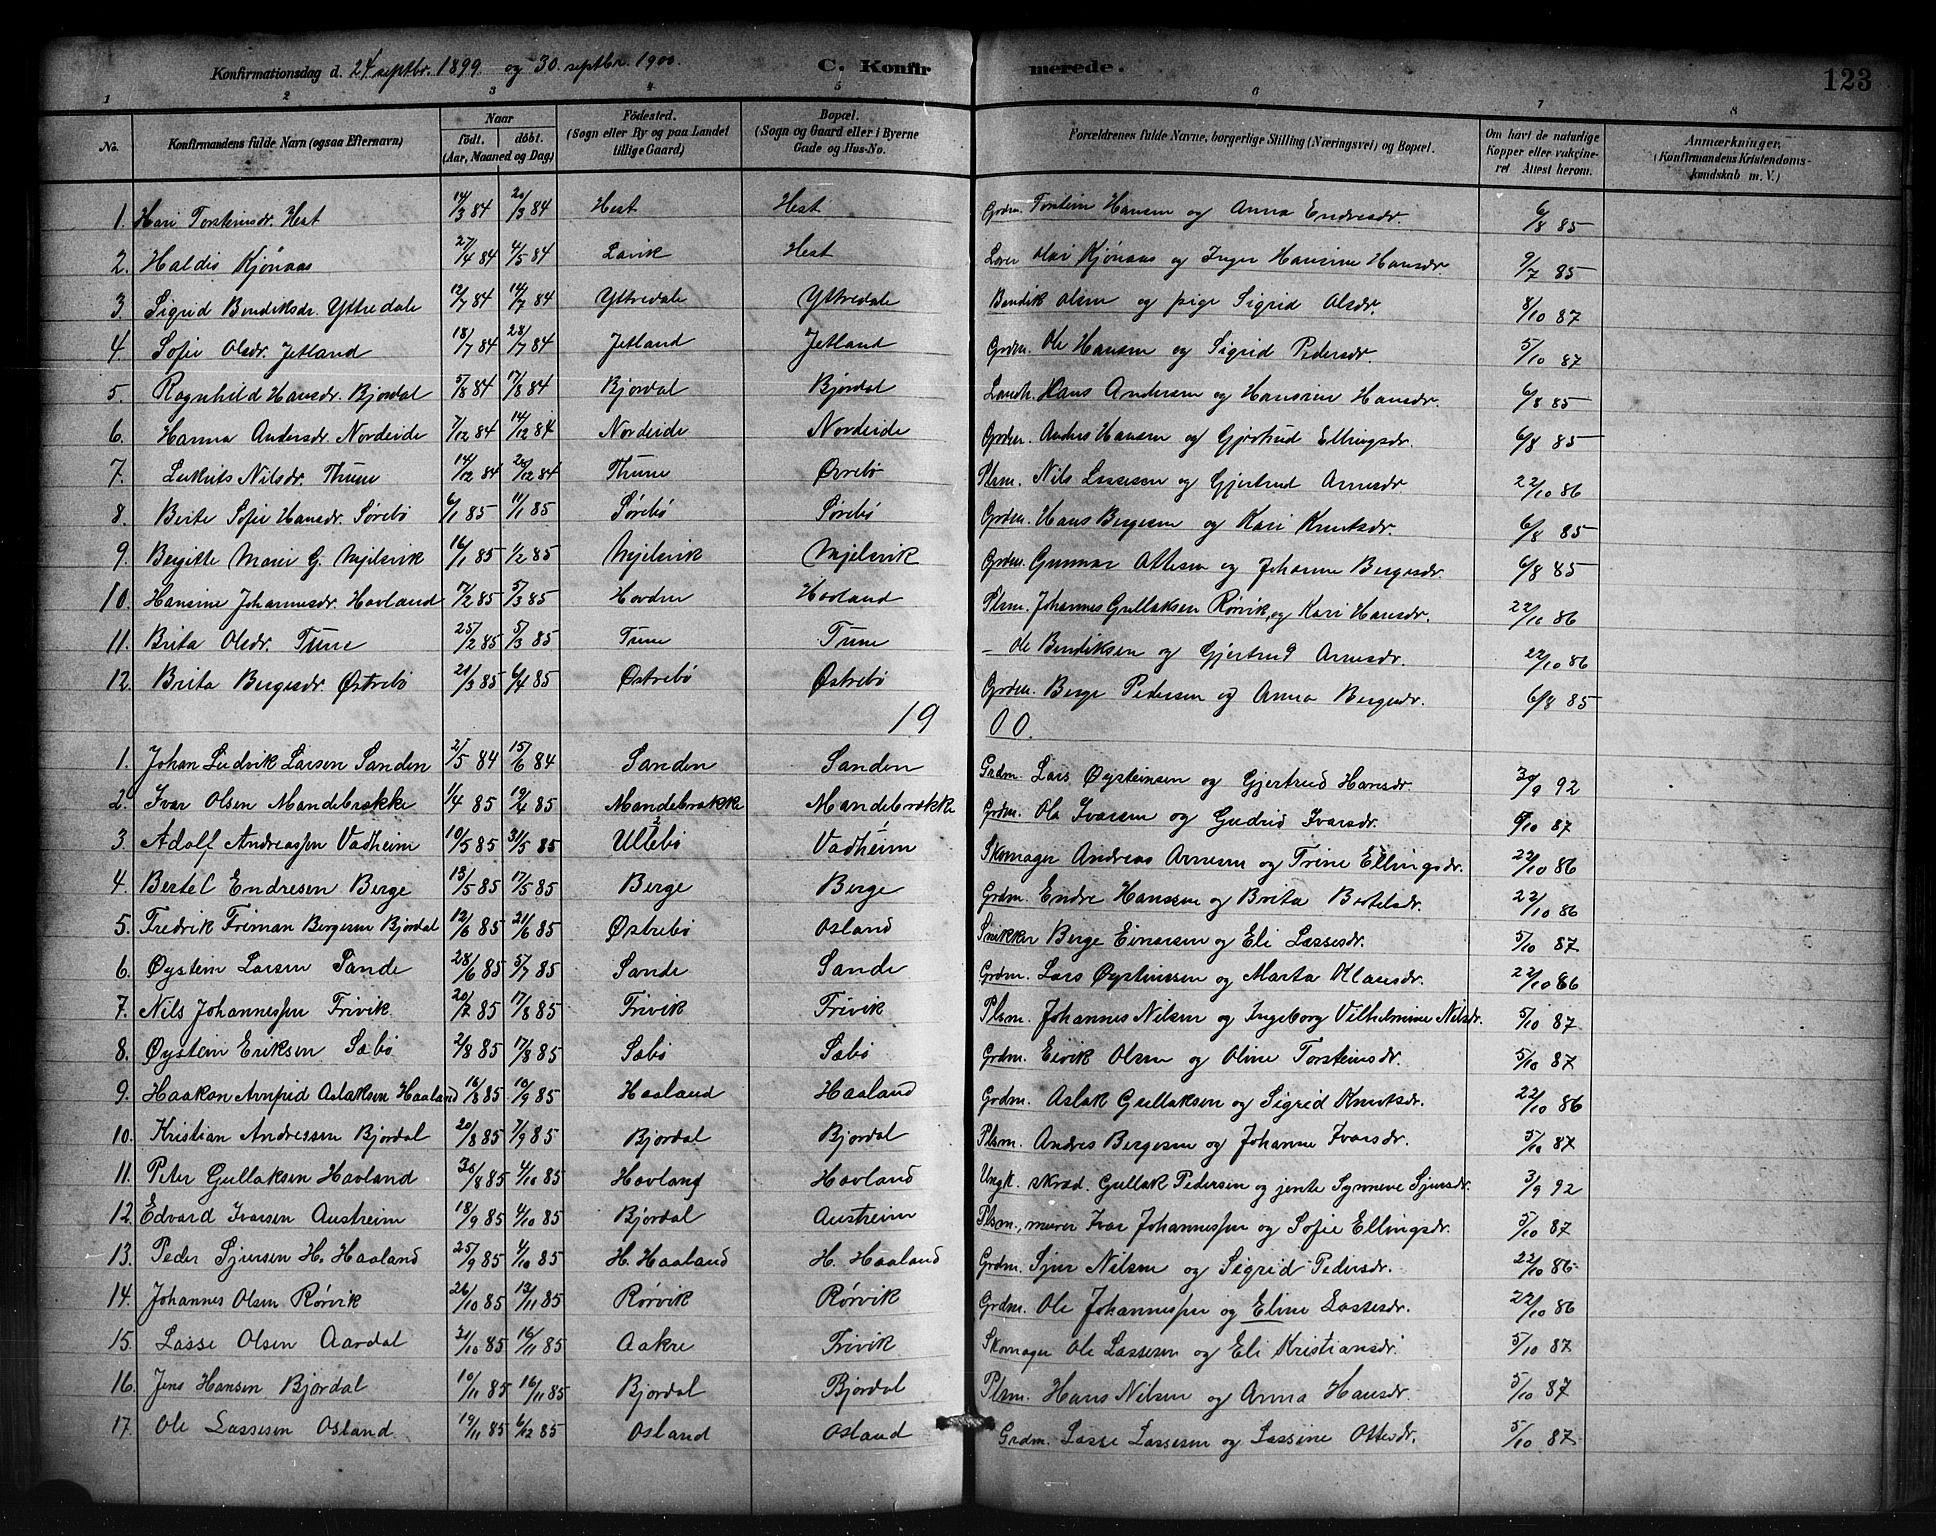 Konfirmationsdag d. 24 septbr. 1899 og 30. septbr. 1900. C. Konfirmerede. 123
1 2 3 4 5 6 7 8
No. Konfirmandens fulde Navn (ogsaa Efternavn) Naar födt. döbt. (Aar, Maaned og Dag) Födested. (Sogn eller By og paa Landet tillige Gaard) Bopæl. (Sogn og Gaard eller i Byerne Gade og Hus-No. Forældrenes fulde Navne, borgerlige Stilling (Næringsvei) og Bopæl. Om havt de naturlige Kopper eller vakcineret Attest herom. Anmærkninger, (Konfirmandens Kristendomskundskab m. V.)
1. Kari Torsteinsdr. Hest 14/3 84 20/3 84 Hest Hest Grdm. Torstein Hansen og Anna Endresdr. 6/8 85
2. Haldis Kjönaas 27/4 84 4/5 84 Lavik Hest Lærer Olai Kjönaas og Inger Hansine Hansdr 9/7 85
3. Sigrid Bendiksdr. Yttredale 12/7 84 14/7 84 Yttredale Yttredale Bendik Olsen og pige Sigrid Olsdr. 8/10 87
4 Sofie Olsdr. Jetland 18/7 84 28/7 84 Jetland Jetland Grdm. Ole Hansen og Sigrid Pedersdr. 5/10 87
5. Ragnhild Hansdr. Bjordal 5/8 84 17/8 84 Bjordal Bjordal Landh. Hans Andersen og Hansine Hansdr. 6/8 85
6. Hanna Andersdr. Nordeide 7/12 84 14/12 84 Nordeide Nordeide Grdm. Anders Hansen og Gjertrud Ellingsdr. 6/8 85
7. Nilsdr. Thune 14/12 84 20/12 84 Thune Øvrebö Plsm. Nils Lassesen og Gjertrud Arnesdr. 22/10 86
8. Berte Sofie Hansdr. Sörebö 6/1 85 11/1 85 Sörebö Sörebö Grdm. Hans Bergesen og Kari Knutsdr. 6/8 85
9. Bergitte Marie G. Mjelsvik 16/1 85 1/2 85 Mjelsvik Mjelsvik Grdm. Gunnar Ottesen og Johanne Bergesdr. 6/8 85
10. Hansine Johannesdr. Hovland 17/2 85 5/3 85 Hovden Hovland Plsm. Johannes Gullaksen Rörvik, og Kari Hansdr. 22/10 86
11. Brita Olsdr. Tune 25/2 85 5/3 85 Tune Tune – Ole Bendiksen og Gjertrud Arnesdr. 22/10 86
12. Brita Bergesdr. Østrebö 21/3 85 6/4 85 Østrebö Østrebö Grdm. Berge Pedersen og Anna Bergesdr. 6/8 85
1900.
1. Johan Ludvik Larsen Sanden 21/5 84 15/6 84 Sanden Sanden Grdm. Lars Øysteinsen og Gjertrud Hansdr. 3/9 92
2. Ivar Olsen Mandebrække 1/4 85 19/4 85 Mandebrække Mandebrække Grdm. Ole Ivarsen og Gudrid Ivarsdr. 5/10 87
3. Adolf Andreassen Vadheim 10/5 85 31/5 85 Ullebö Vadheim Skomager Andreas Arnesen og Trine Ellingsdr. 22/10 86
4. Bertel Endresen Berge 13/5 85 17/5 85 Berge Berge Grdm. Endre Hansen og Brita Bertelsdr. 22/10 86
5. Fredrik Friman Bergesen Bjordal 12/6 85 21/6 85 Østrebö Osland Snekker Berge Einarsen og Eli Lassesdr. 5/10 87
6. Øystein Larsen Sande 28/6 85 5/7 85 Sande Sande Grdm. Lars Øysteinssen og Marta Klausdr. 22/10 86
7. Nils Johannessen Frivik 20/7 85 17/8 85 Frivik Frivik Plsm. Johannes Nilsen og Ingeborg Vilhelmine Nilsdr. 5/10 87
8. Øystein Eriksen Sæbö 2/8 85 17/8 85 Sæbö Sæbö Grdm. Eirik Olsen og Oline Torsteinsdr. 5/10 87
9. Haakon Arnfrid Aslaksen Haaland 16/8 85 10/9 85 Haaland Haaland Grdm. Aslak Gullaksen og Sigrid Knutsdr. 22/10 86
10. Kristian Andressen Bjordal 20/8 85 7/9 85 Bjordal Bjordal Plsm. Andres Bergesen og Johanne Ivarsdr. 5/10 87
11. Peter Gullaksen Hovland 30/8 85 4/10 85 Hovland Hovland Ungk. skræd. Gullak Pedersen og jente Synneve Sjursdr. 3/9 92
12. Edvard Ivarsen Austreim 18/9 85 4/10 85 Bjordal Austreim Plsm., murer Ivar Johannessen og Sofie Ellingsdr. 5/10 87
13. Peder Sjursen H. Haaland 25/9 85 4/10 85 H. Haaland H. Haaland Grdm. Sjur Nilsen og Sigrid Pedersdr. 22/10 86
14. Johannes Olsen Rörvik 26/10 85 13/11 85 Rörvik Rörvik Grdm. Ole Johannessen og Eline Lassesdr. 22/10 86
15. Lasse Olsen Aardal 21/10 85 16/11 85 Aakre Frivik Skomager Ole Lassesen og Eli Kristiansdr. 5/10 87
16. Jens Hansen Bjordal 10/11 85 16/11 85 Bjordal Bjordal Plsm. Hans Nilsen og Anna Hansdr. 5/10 87
17. Ole Lassesen Osland 19/11 85 6/12 85 Osland Osland Grdm. Lasse Lassesen og Lassine Ottesdr. 5/10 87